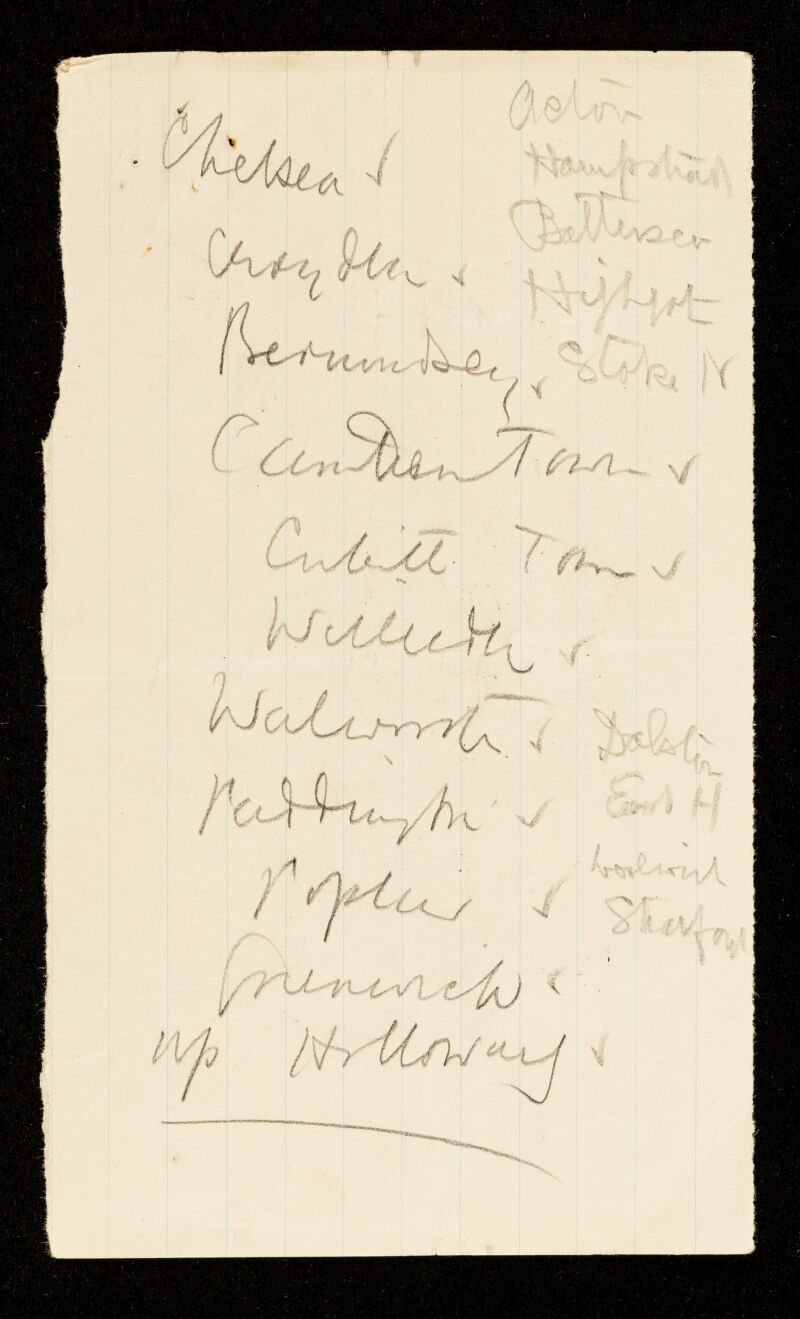 Chelsea ✓
Croydon ✓
Bermondsey ✓
Camden Town ✓
Cubitt Town ✓
Walworth ✓
Paddington ✓
Poplar ✓
Greenwich ✓
up Holloway ✓
Acton
Hampstead
Battersea
Highgate
Stoke N
Dalston
East H
Woolwich
Stratford